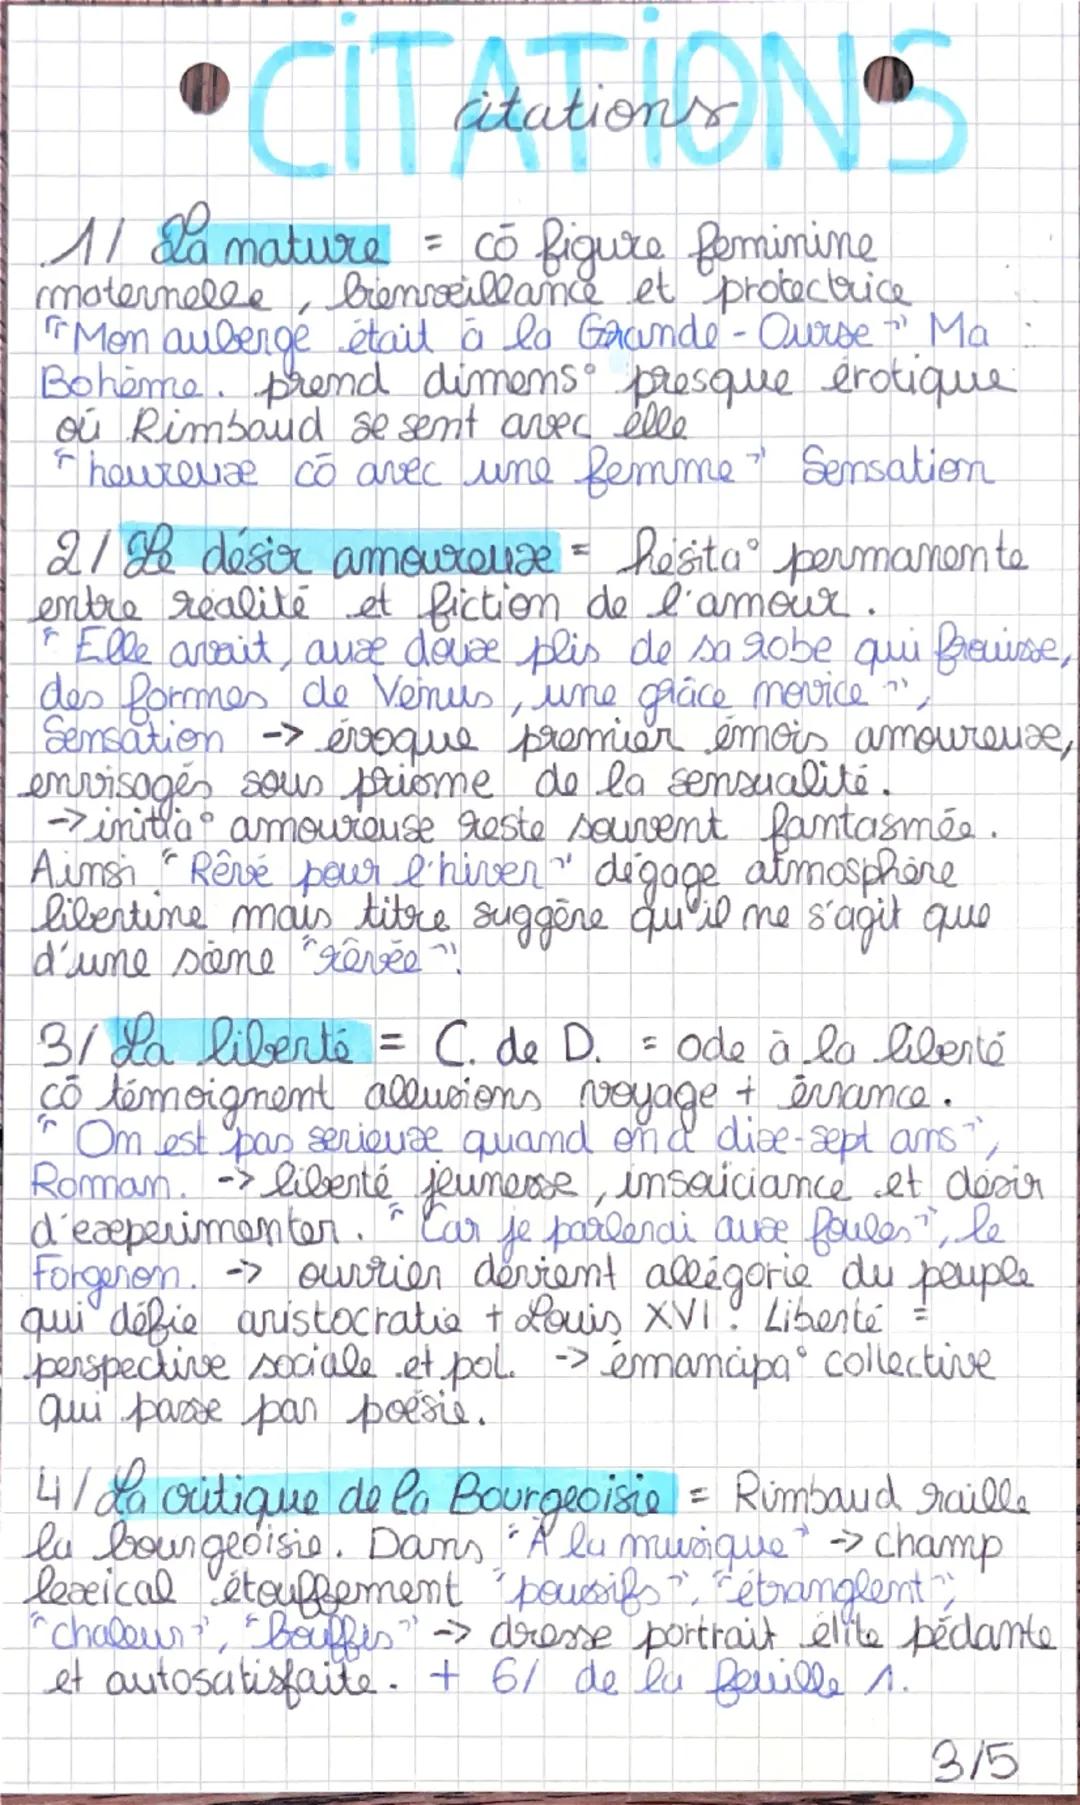 CITATIONS
citations
1/ La nature = cō figure feminine
maternelle, bienveillance et protectrice
"Mon auberge était à la Grande-Ourse" Ma
Bohème. prend dimens° presque érotique
où Rimbaud se sent avec elle
"heureux cō avec une femme" Sensation
2/ Le désir amoureux = hésita° permanente
entre réalité et fiction de l'amour.
"Elle avait, aux doux plis de sa robe qui frouisse,
des formes de Vénus, une grâce novice",
Sensation -> évoque premier émois amoureux,
envisagés sous prisme de la sensualité.
-> initia° amoureuse reste souvent fantasmée.
Ainsi "Rêvé pour l'hiver" dégage atmosphère
libertine mais titre suggère qu'il ne s'agit que
d'une scène "rêvée".
3/ La liberté = C. de D. = ode à la liberté
cō témoignent allusions voyage + érrance.
"On est pas serieux quand on a dix-sept ans",
Roman. -> liberté jeunesse, insouiciance et désir
d'experimenter. "Car je parlerai aux foules", le
Forgeron. -> ouvrier devient allégorie du peuple
qui défie aristocratie + Louis XVI. Liberté =
perspective sociale et pol. -> émancipa° collective
qui passe par poésie.
4/ La critique de la Bourgeoisie = Rimbaud raille
la bourgeoisie. Dans "À la musique" -> champ
lexical étouffement "poussifs", "étranglent",
"chaleur", "Bouffis" -> dresse portrait élite pédante
et autosatisfaite. + 6/ de la feuille 1.
3/5